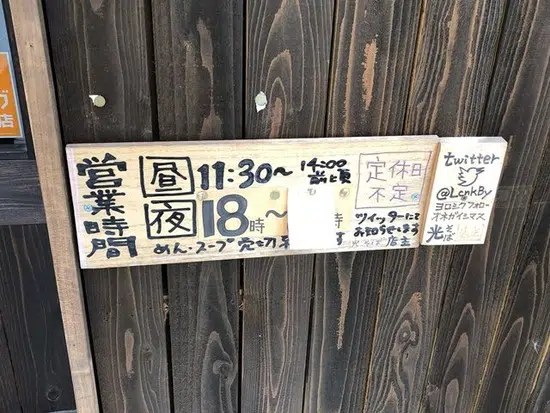 営業時間
昼 11:30〜 14:00前頃
夜 18時〜
めん・スープ売切
定休日
不定
ツイッターにて
お知らせします
店主
twitter
@LcnkBy
ヨロシクフォロー
オネガイシマス
光そば
店